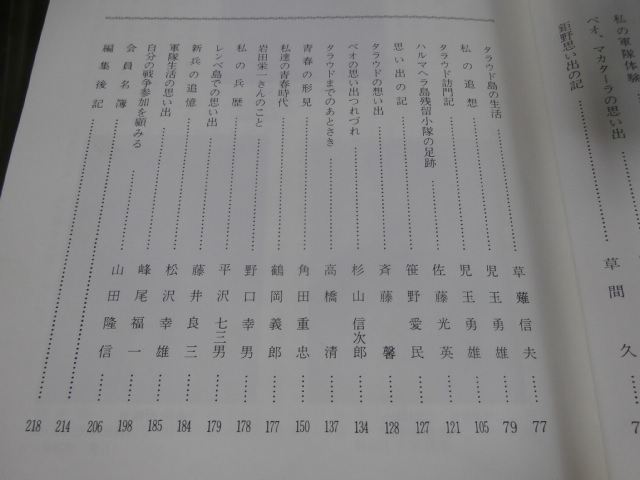 私の軍隊体験
ベオ、マカターラの思い出……草間 久……7
鉅野思い出の記
タラウド島の生活……草薙信夫……77
私の追想……児玉勇雄……79
タラウド訪門記……児玉勇雄……105
ハルマヘラ島残留小隊の足跡……佐藤光英……121
思い出の記……笹野愛民……127
タラウドの想い出……斉藤 馨……128
ベオの思い出つれづれ……杉山信次郎……134
タラウドまでのあとさき……高橋 清……137
青春の形見……角田重忠……150
私達の青春時代……鶴岡義郎……177
岩田栄一さんのこと……野口幸男……178
私の兵歴……平沢七三男……179
レンベ島での思い出……藤井良三……184
新兵の追憶……松沢幸雄……185
軍隊生活の思い出……峰尾福一……198
自分の戦争参加を顧みる……山田隆信……206
会員名簿……214
編集後記……218